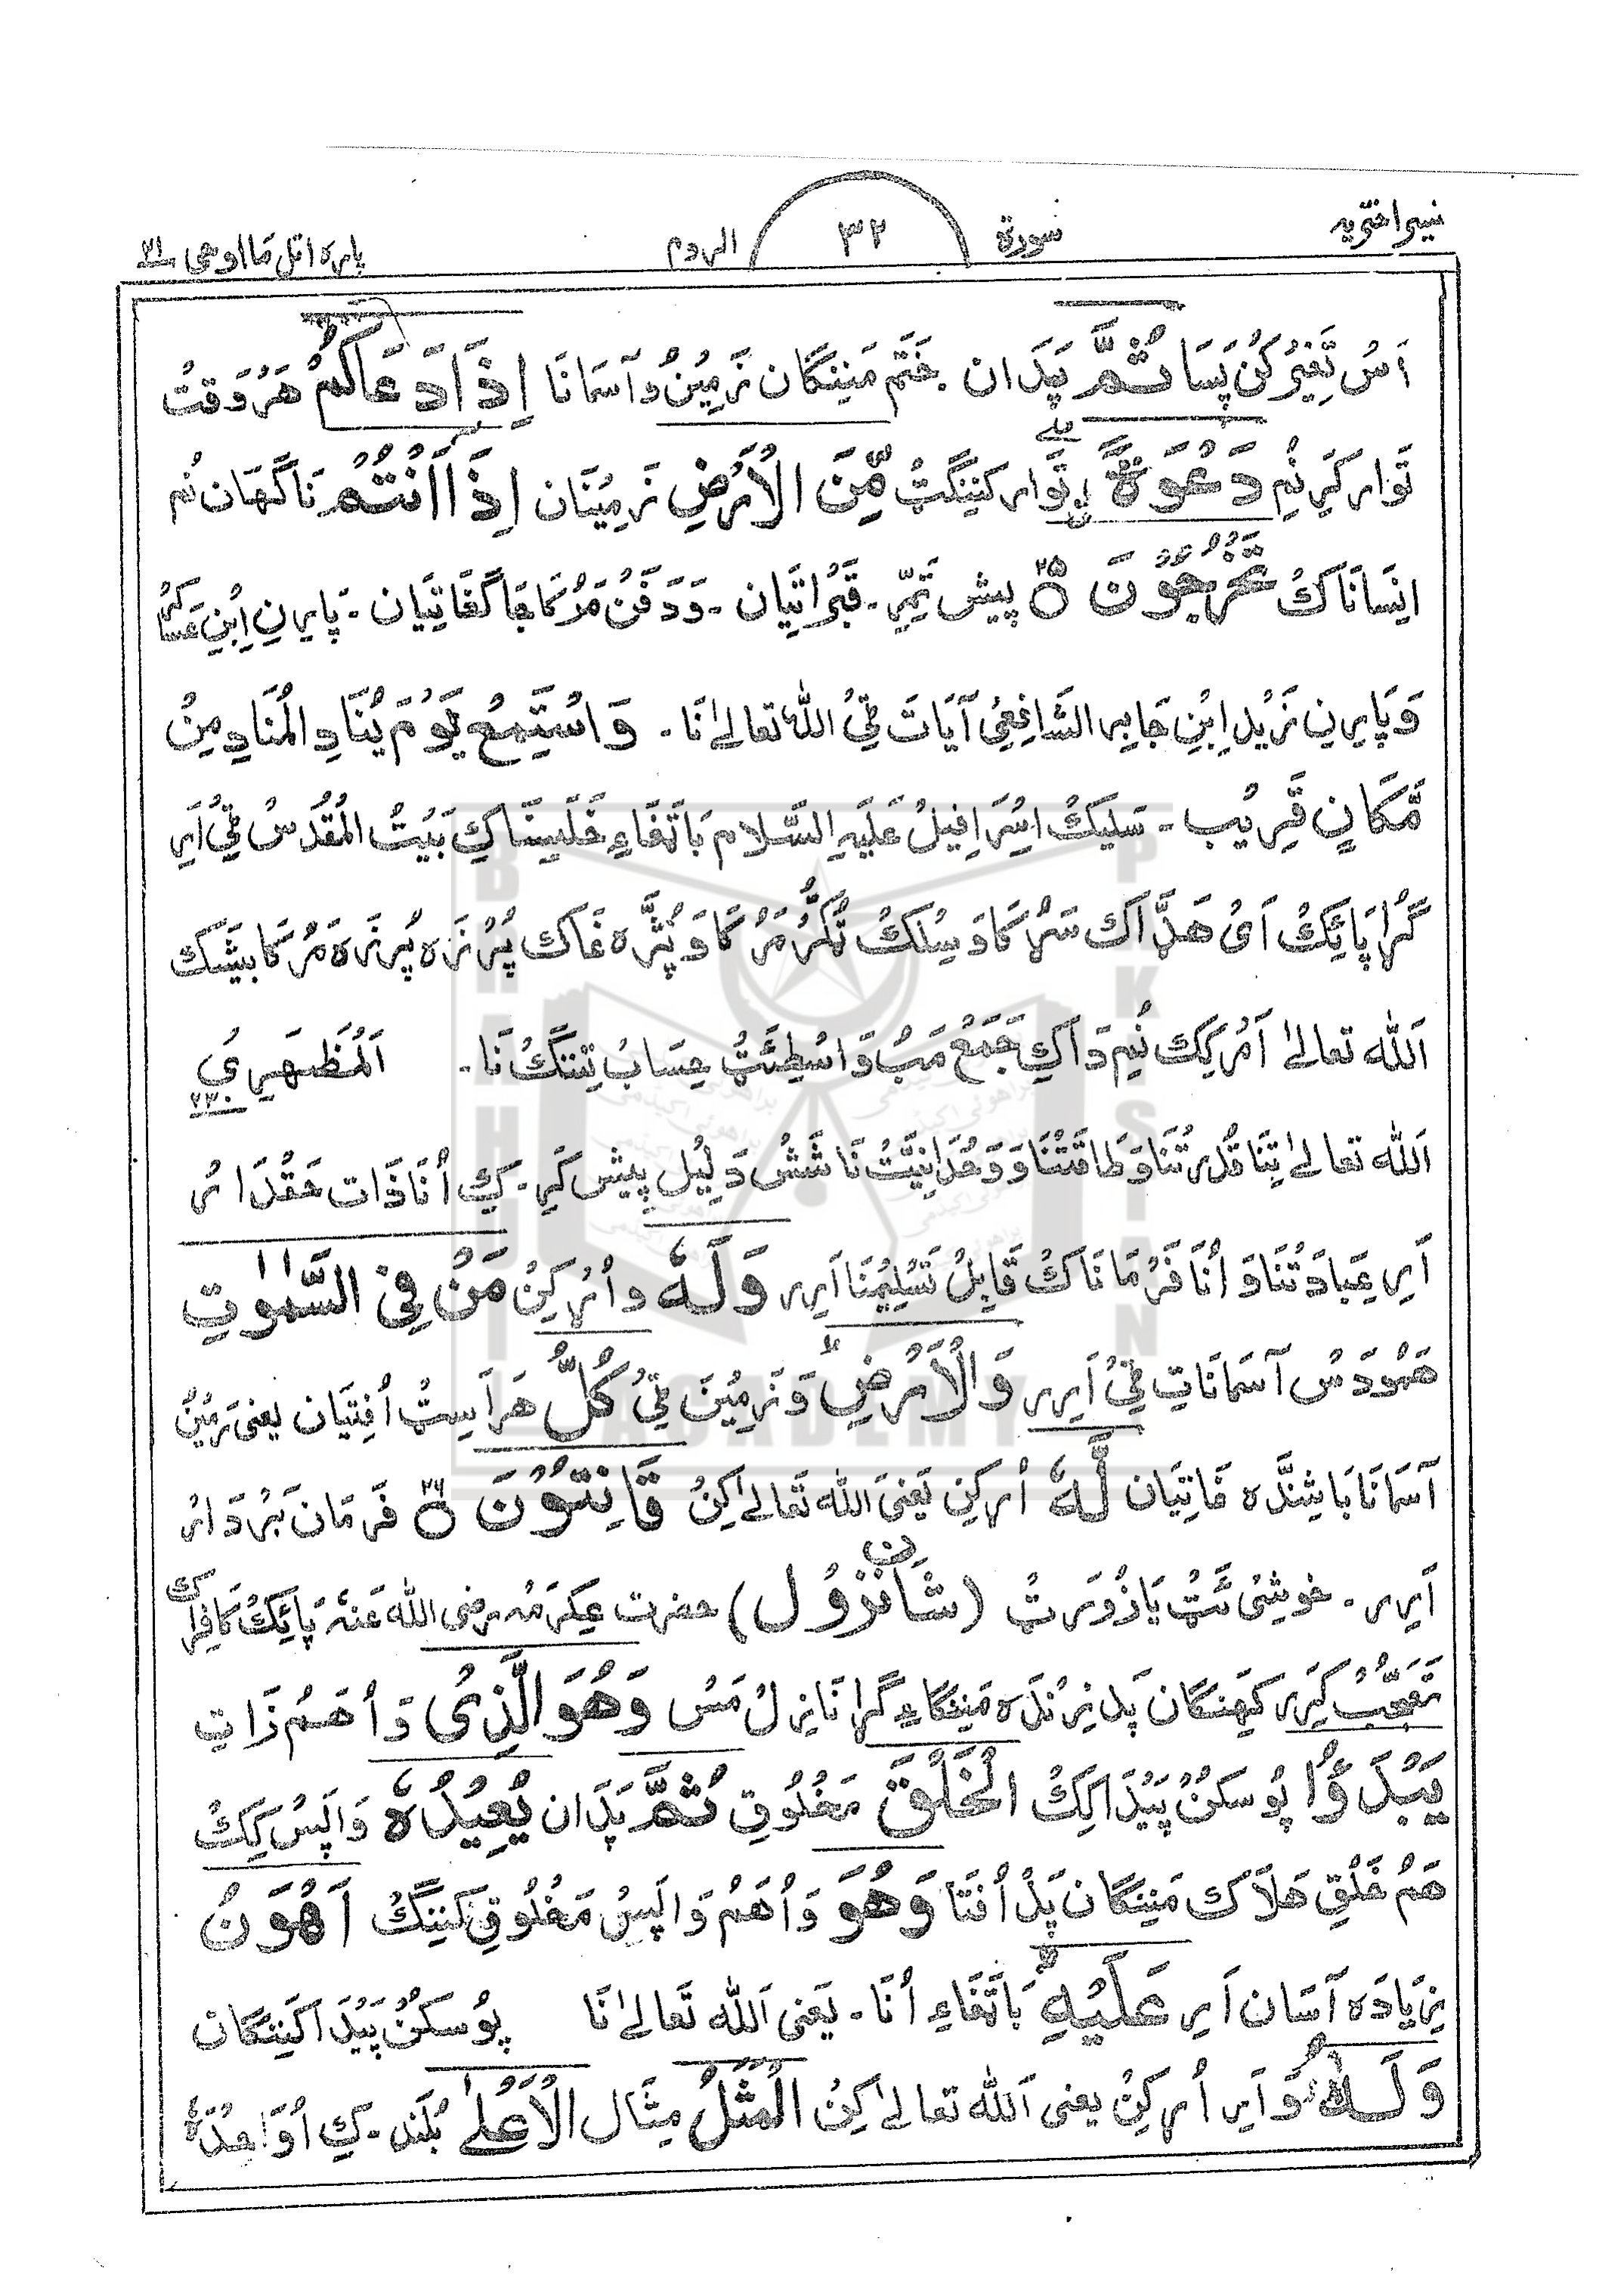 تفسیر اختریه سورة ٣٢ الروم پاره اتل ما اوحی ٢١
اَسُ تَغِیرُ کُن پَسَا ثُمَّ پَدَان خَتم مَنِنگان زَمِینُ و آسمانَا اِذَا دَعَاكُمْ هَرُوَقتُ
تَوار کَرِنُمِ دَعْوَةً تَوار کننگٹ مِّنَ الْاَرْضِ زَمِینَان اِذَا اَنْتُمْ ناگهَان نُم
انِسَانَاكُ تَخْرُجُوْنَ ٢٥ پیش تَمِّر۔ قَبراتِیَان۔ وَدَفَن مَرُکا جَاگَغَاتِیَان۔ پَایِرنِ اِبنِ عَسَاکر
وَپَایِرنِ زَیُد اِبُنِ جَابِر الشَافِعِی آیَات ٹی اللہ تعالےٰ نَا۔ وَاسْتَمِعْ يَوْمَ يُنَادِ الْمُنَادِ مِنْ
مَّكَانٍ قَرِيْبٍ۔ سَلیکُ اسِرَافِیلُ عَلَیهِ السَّلام بَاتَغَاءِ خَلیِنَاکِ بَیُتُ المُقَدَس ٹِی اَیِر
گُڑا پَائِکُ اَیُ هَڈَّاک سَڑُکا وَسِلکُ ٹُکُّر مَرُکَا وَپُٹَّه غَاک پُرُزَه پُرزَه مَرُکا بیشَك
اَللہ تعالےٰ اَمُرکِك نُمِ دَاکِ جَمَعُ مَبُ وَاسُطِئَٹُ حِسَابُ تِنِنگُ نَا۔ اَلمُظهَرِی ٢٣٠
اَللہ تعالےٰ تِنَا قُدرَتُنَا وَ طَاقَتُنَا وَ وَحُدَانِیَّتُ نَا شَشُ دَلِیُل پیش کَرِ۔ کِ اُنَاذَات حَقُدَارُ
اَیِر عِبَادَتُنَا وَ اُنَا فَرُمَانَاکُ قَابِلُ تَسُلِیُمنَا اَیِرر وَلَهٗ و اُر کِنُ مَنْ فِي السَّمٰوٰتِ
هَنُودَسُ آسمَانَاتِ ٹی اَیِرر وَالْاَرْضِ وَ زَمِیُنَ ٹِی كُلٌّ هَر اَسِٹُ اُفِتِیَان یعنی زمِینُ
آسمَانَا بَاشِنَّدَه غَاتِیَان لَّهٗ اُر کِن یَعنی اللہ تَعَالےٰ کِنُ قَانِتُوْنَ ٢٦ فَرمَان بَرُدَارُ
اَیِرر۔ خوشِیُ ئَٹُ یَا زُورَٹُ (شَانُزُوُل) حضرت عِکرَمَه رضی اللہ عَنهُ پَائِکُ کَافِرَاک
تَعَجُّبُ کَرِر کَهِنگان پَد زِنُدَه مَنِنگاءِ گُڑا نَازِلُ مَسُ وَهُوَ الَّذِيْ وَ اُهَمُ ذَاتِ
يَبْدَؤُا پُوسکُنُ پَیُدَا کِکُ الْخَلْقَ مَخُلُوقِ ثُمَّ پَدَان يُعِيْدُهٗ وَاپَسُ کِکُ
هَمُ خَلُقِ هَلَاك مَنِنگان پَدُ اُفتَا وَهُوَ وَ اُهَمُ وَاپسُ مَخُلُوقِ کَنِنگُ اَهْوَنُ
زِیَادَه آسَان اَیِر عَلَيْهِ بَاتَغَاءِ اُنَا۔ یَعنی اَللہ تَعَالےٰ نَا پُوسکُنُ پَیُدَا کنِنگان
وَلَهُ وَ اَیِر اُر کِنُ یعنی اَللہ تعالےٰ کِنُ الْمَثَلُ مِثَال الْاَعْلٰى بُلَند۔ کِ اُوَاحِدُهٗ